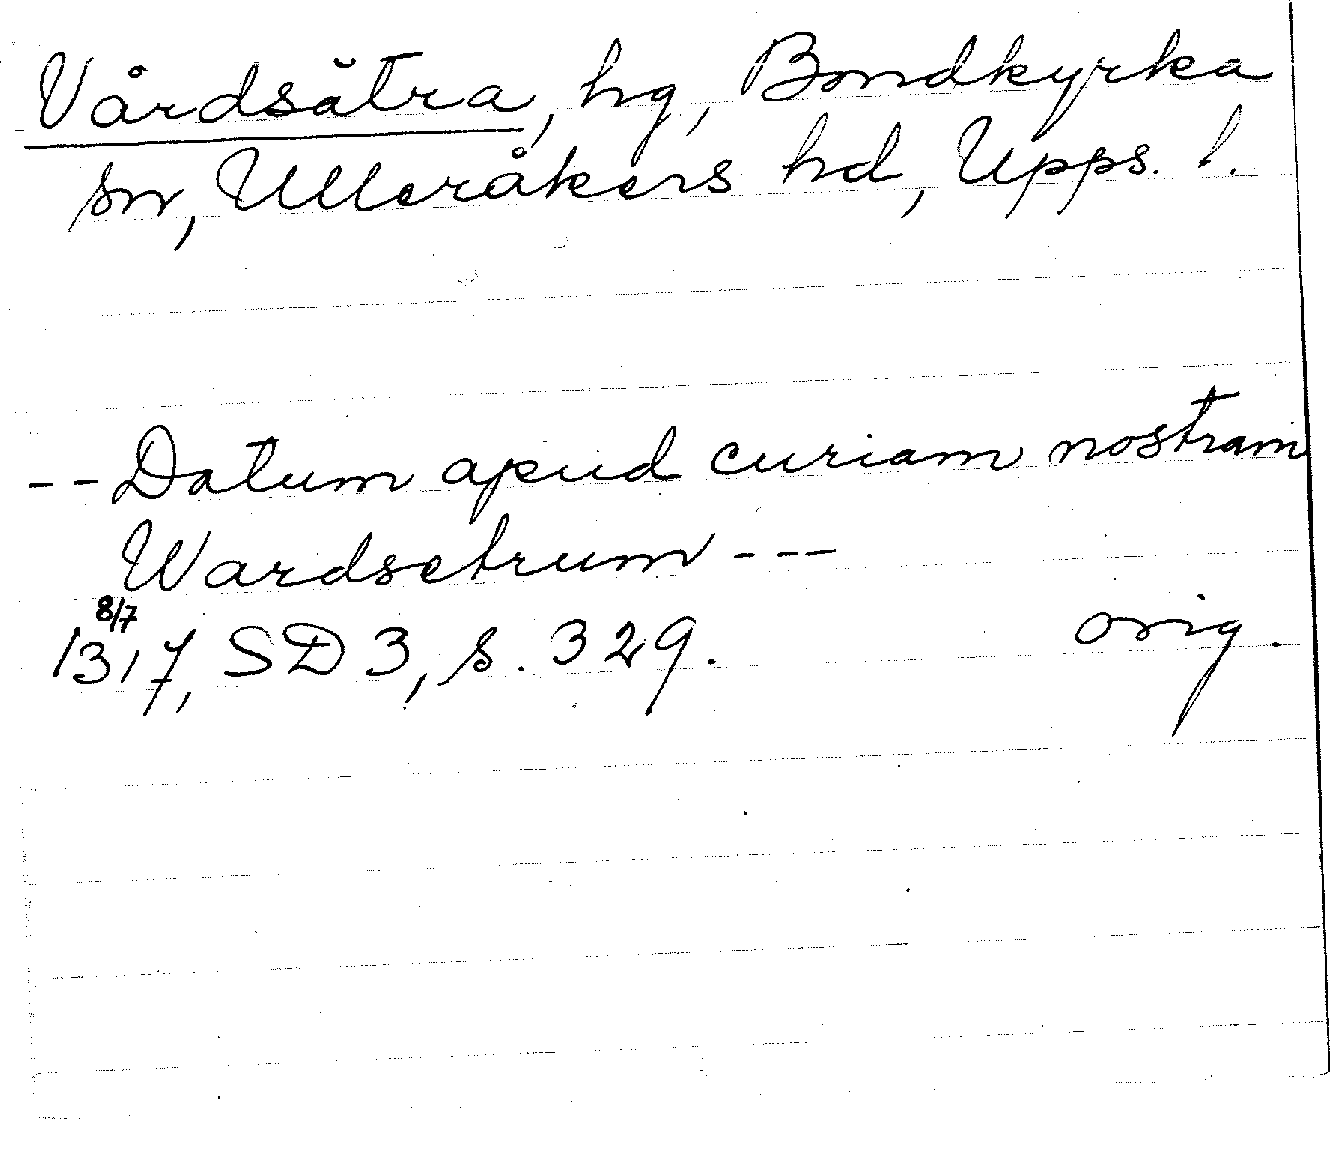 Vårdsätra, hg, Bondkyrka
sn, Ulleråkers hd, Upps. l.
-- Datum apud curiam nostram
Wardsetrum ---
8/7
1317, SD 3, s. 329. orig.